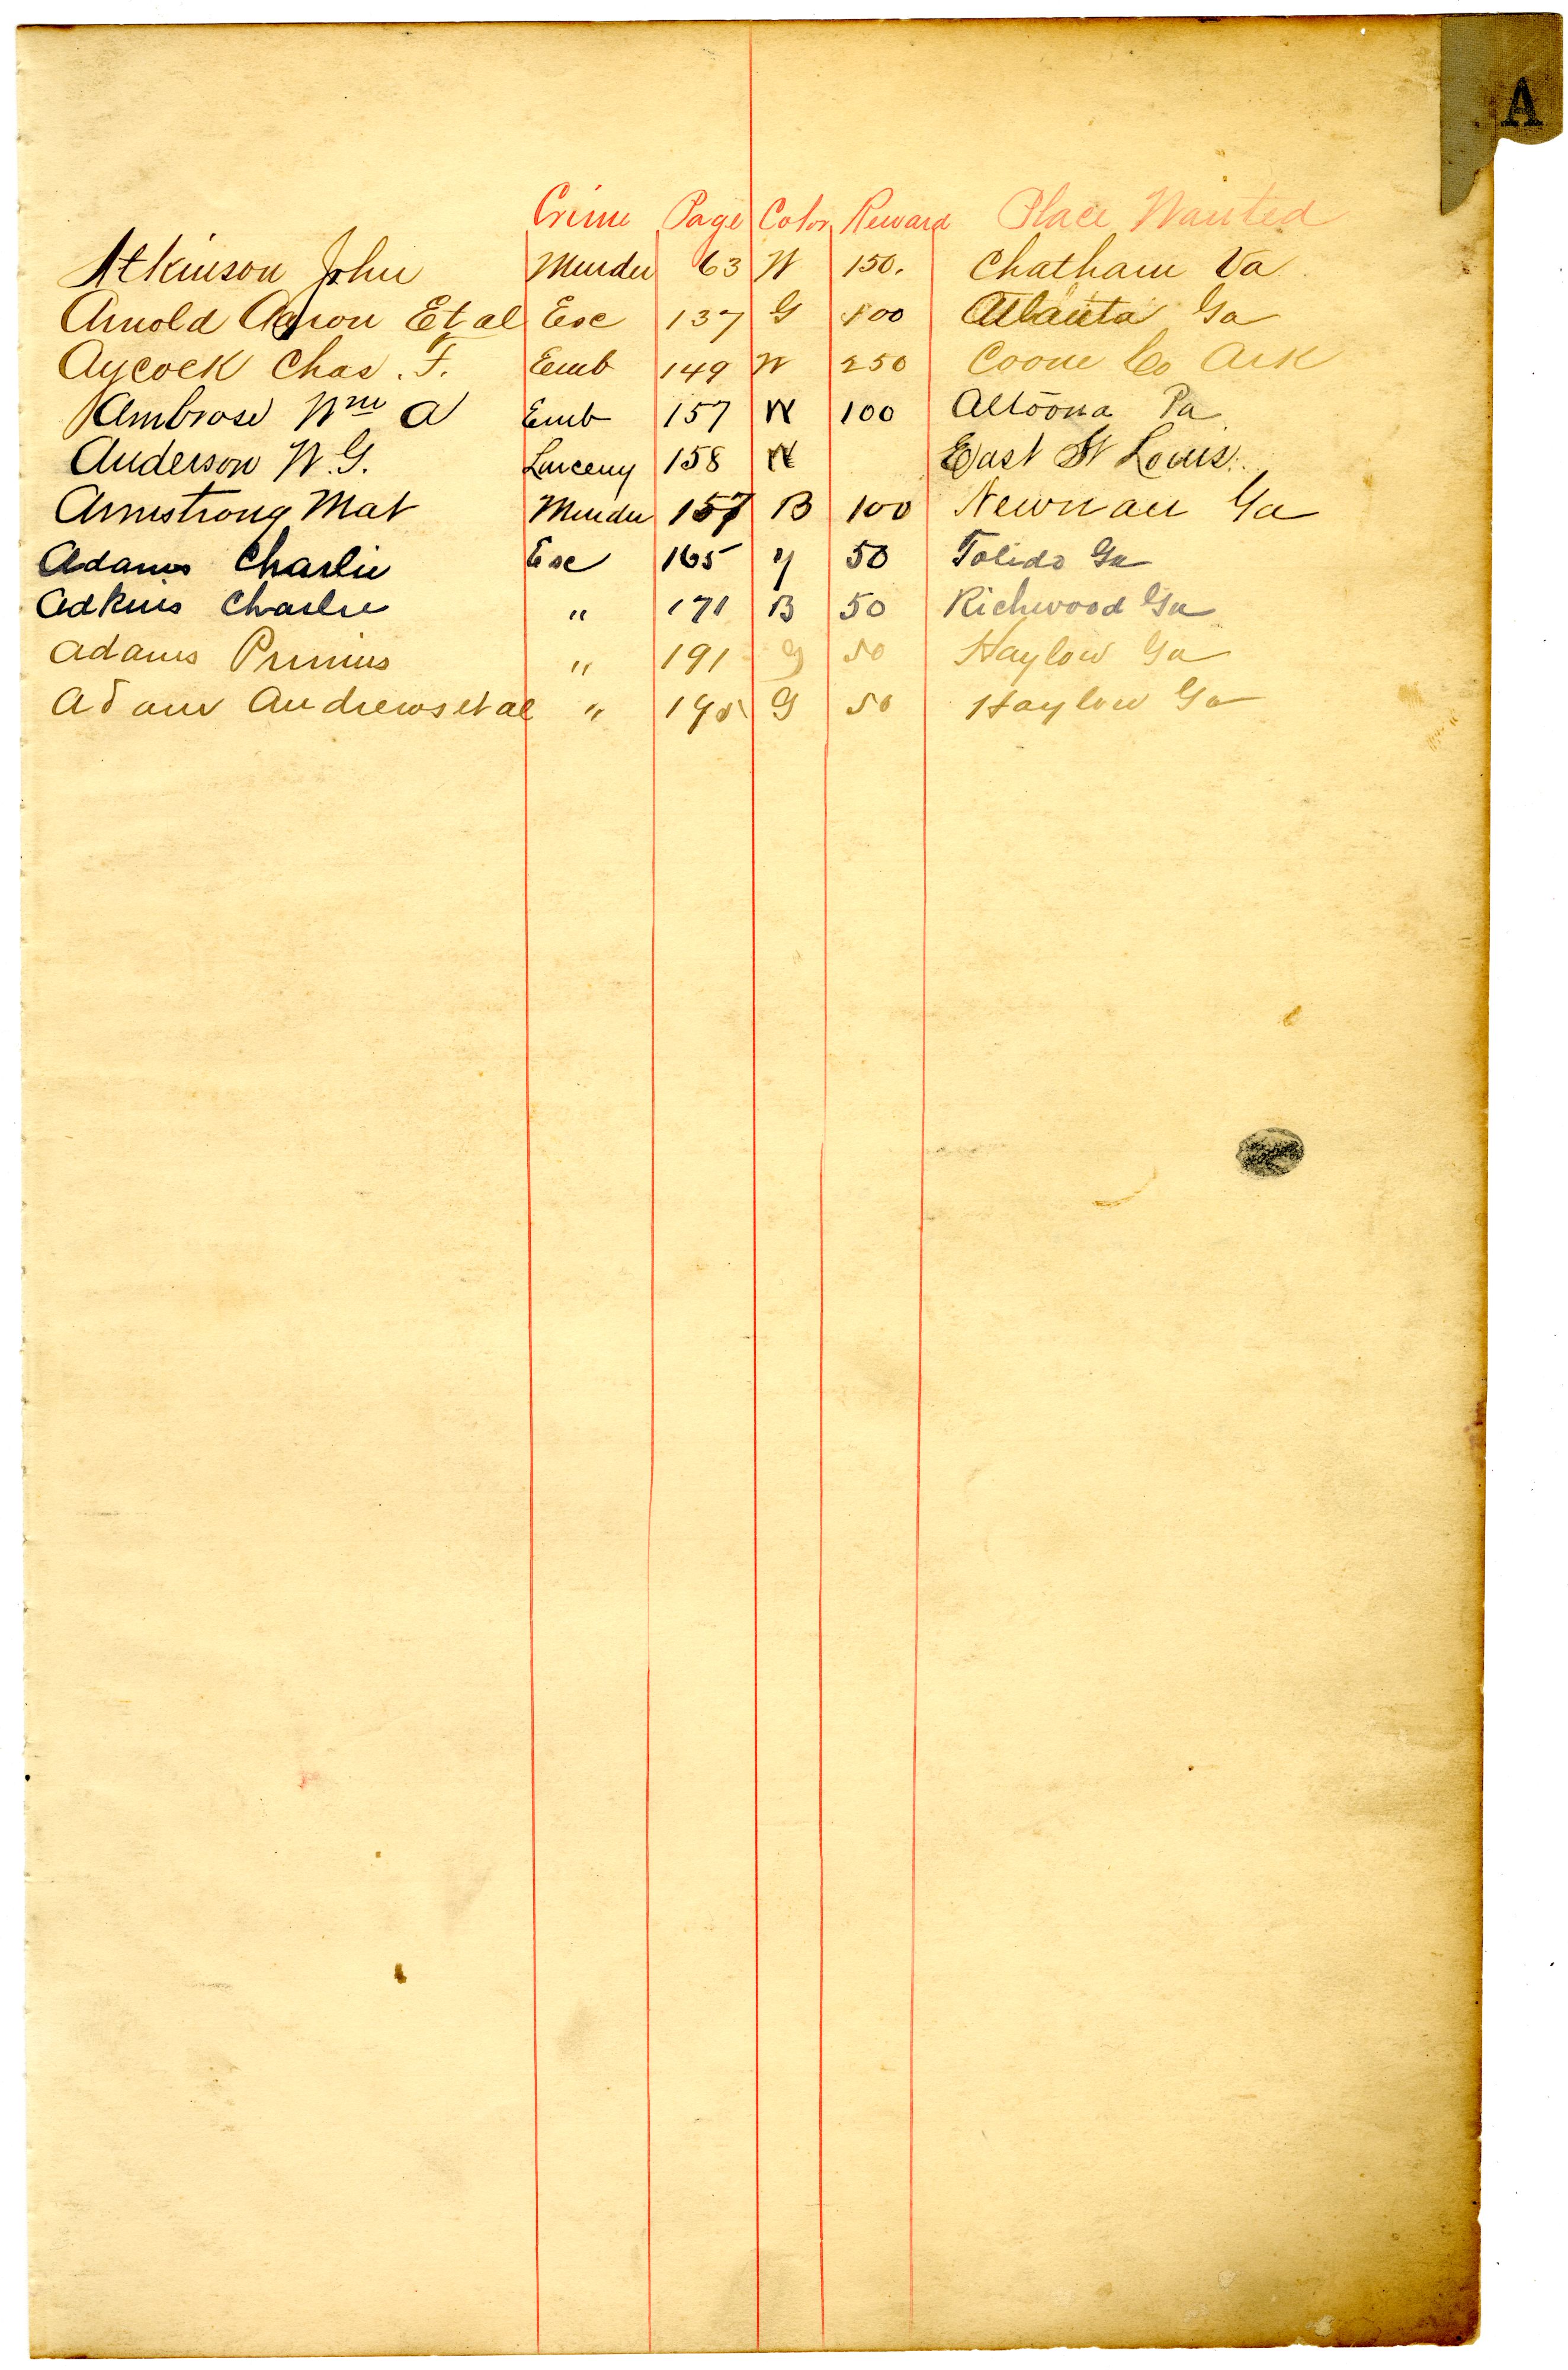 A
Crime Page Color Reward Place Wanted
Atkinson John Murder 63 W 150. Chatham Va.
Arnold Aaron Et al Esc 137 G 100 Atlanta Ga
Aycock Chas. F. Emb 149 W 250 Coone Co Ark
Ambrose Wm A Emb 157 W 100 Altoona Pa.
Anderson W. G. Larceny 158 W East St Louis.
Armstrong Mat Murder 157 B 100 Newnan Ga
Adams Charlie Esc 165 50 Tolido Ga
Adkins Charlie " 171 B 50 Richwood Ga
Adams Primus " 191 G 50 Haylow Ga
Adam Andrews et al " 195 G 50 Haylow Ga